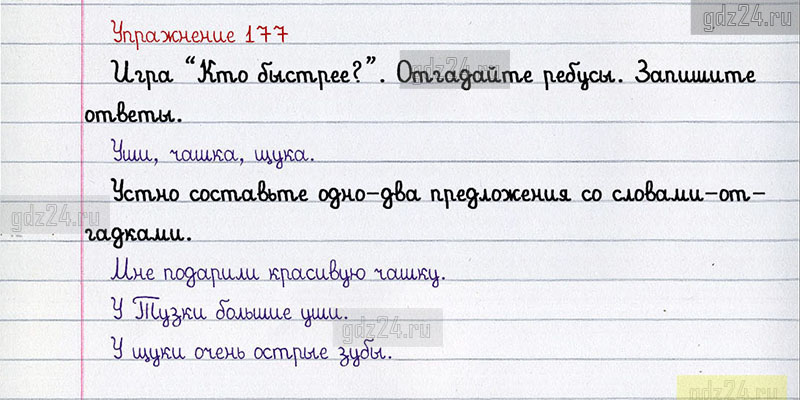 gdz24.ru
Упражнение 177
Игра “Кто быстрее?”. Отгадайте ребусы. Запишите
gdz24.ru
ответы.
Уши, чашка, щука.
Устно составьте одно-два предложения со словами-от-
gdz24.ru
гадками.
Мне подарили красивую чашку.
У Тузки большие уши.
gdz24.ru
У щуки очень острые зубы.
gdz24.ru